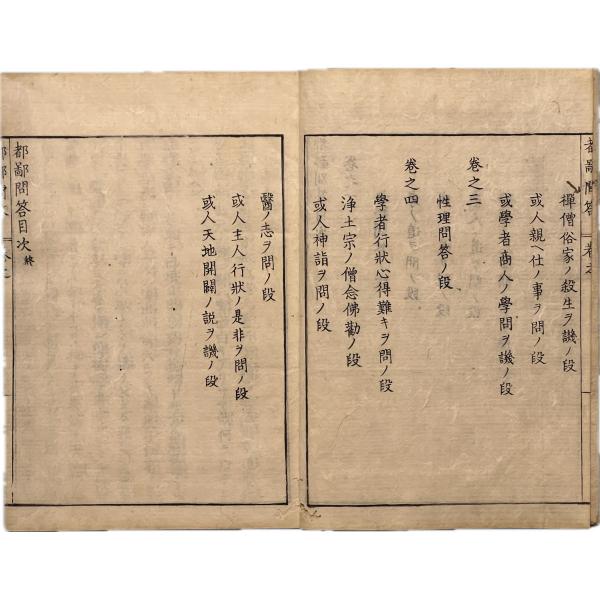 都鄙問答 卷之
禪僧俗家ノ殺生ヲ譏ノ段
或人親ヘ仕ノ事ヲ問ノ段
或學者商人ノ學問ヲ譏ノ段
卷之三
性理問答ノ段
卷之四
學者行狀心得難キヲ問ノ段
淨土宗ノ僧念佛勸ノ段
或人神詣ヲ問ノ段
醫ノ志ヲ問ノ段
或人主人行狀ノ是非ヲ問ノ段
或人天地開闢ノ説ヲ譏ノ段
都鄙問答目次終